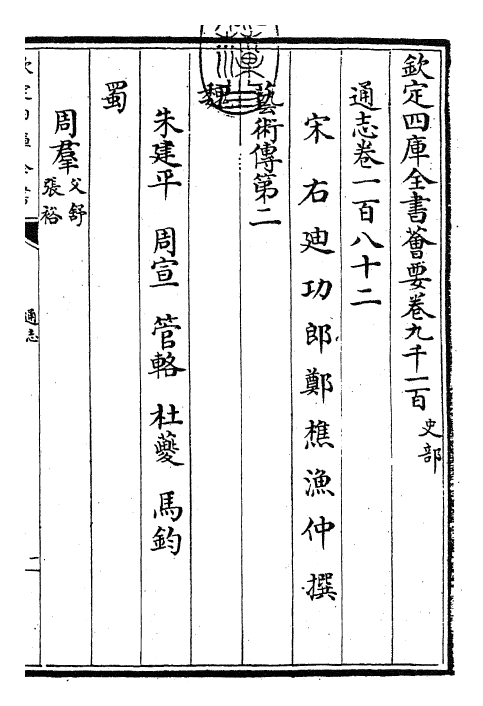 欽定四庫全書薈要卷九千一百 史部
通志卷一百八十二
宋右迪功郎鄭樵漁仲撰
藝術傳第二
魏
朱建平 周宣 管輅 杜夔 馬鈞
蜀
周羣 父舒 張裕
通志